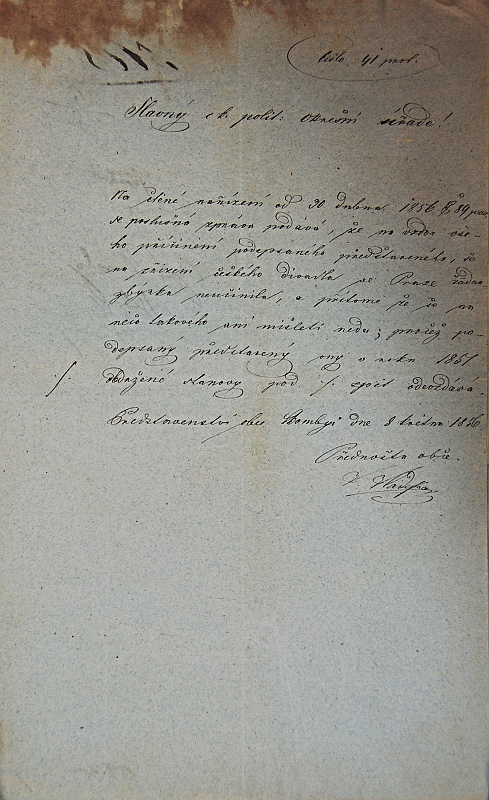 číslo 41 prot.
Slavný c k. polit: Okresní úřade!
Na ctěné nařízení od 30 dubna 1856 § 89 praes
se poslušně zpráva podává, že na vzdor vše-
ho přičinění podepsaného představeného, se
na zřízení českého divadla ve Praze žádna
zbýrka neučinila, a přitome že se na
něco takového ani mišleti nedá; pročež po-
depsaný představený ony v roku 1851
obdržené stanovy pod ./. zpět odevzdává.
Představenství obce dne 8 května 1856
Přednosta obce.